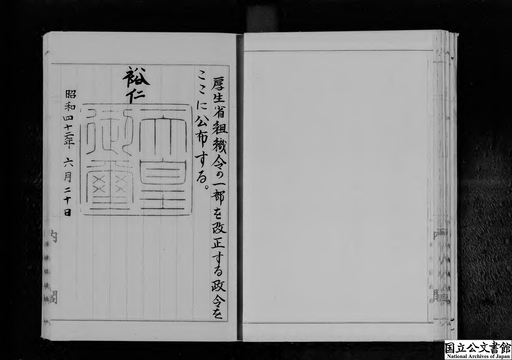 厚生省組織令の一部を改正する政令を
ここに公布する。
裕仁
天皇
御璽
昭和四十三年 六月二十日
内閣
国立公文書館
National Archives of Japan